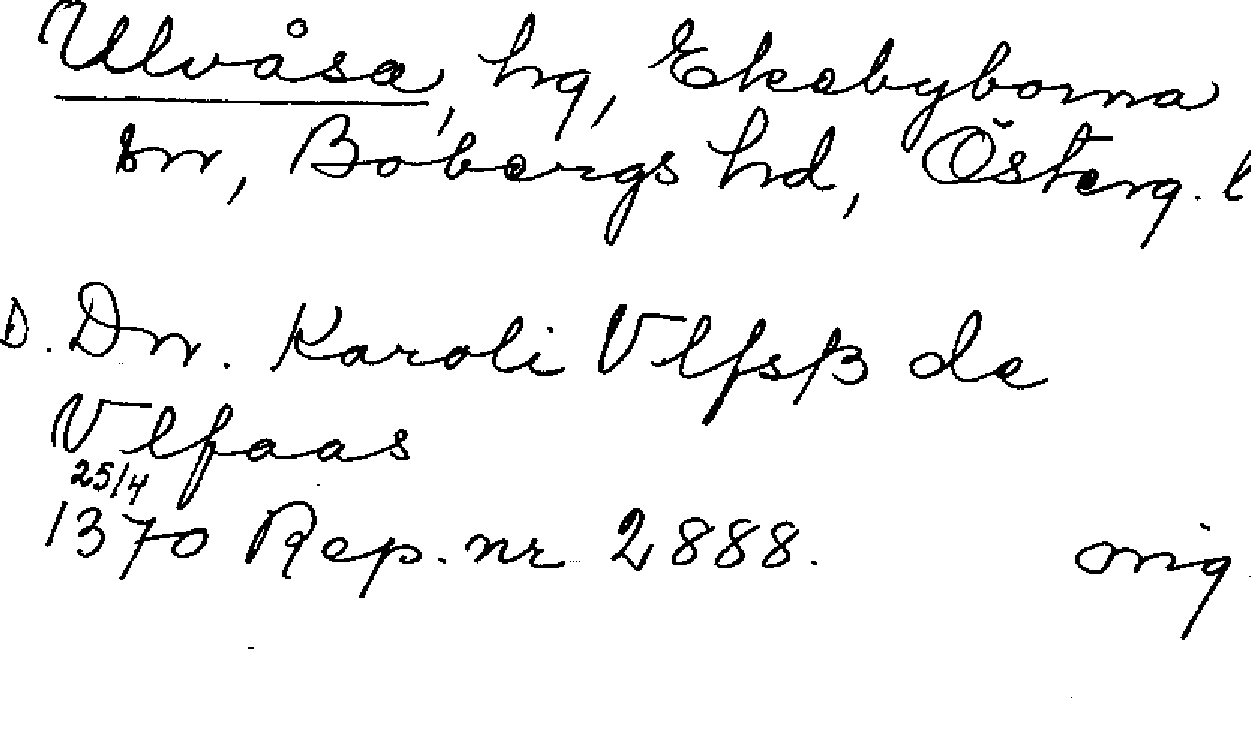 Ulvåsa, hg, Ekebyborna
sn, Bobergs hd, Österg. l
D. Dn. Karoli Vlfsß de
Vlfaas
25/4
1370 Rep. nr 2888. orig.